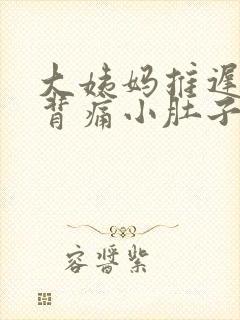 大姨妈推迟
背痛小肚子
容醬紫